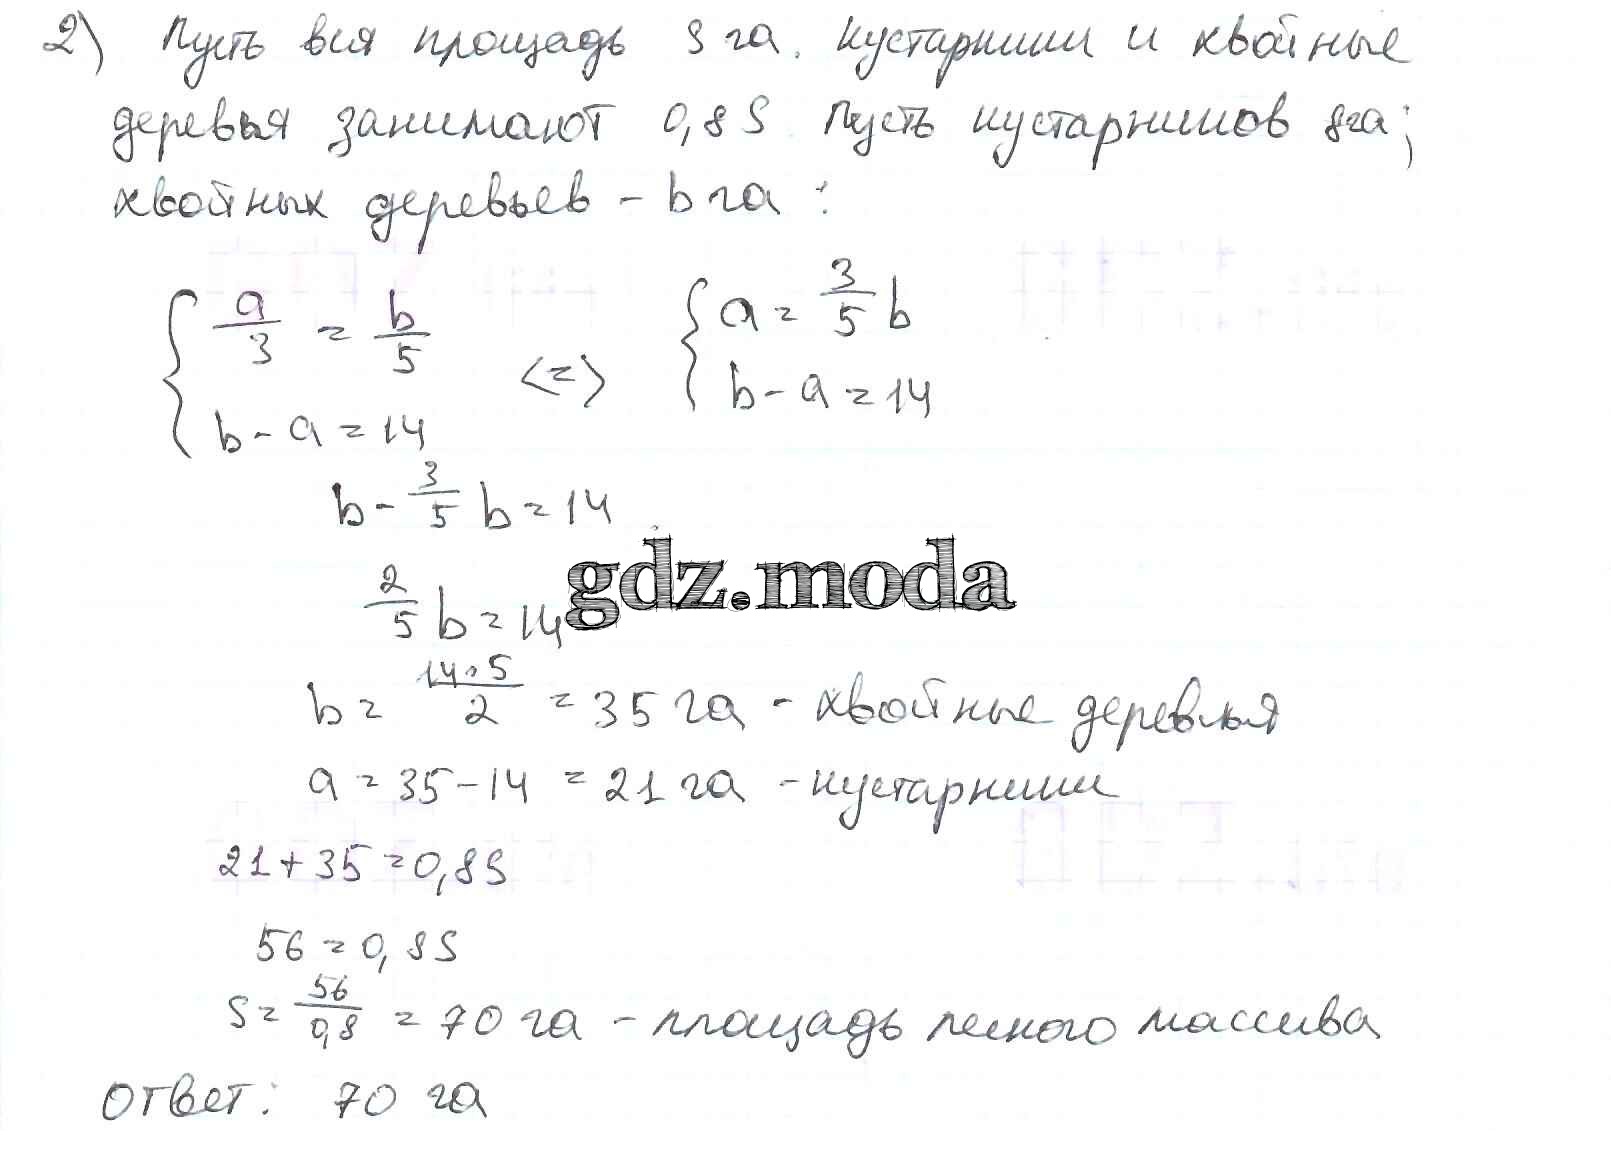 2) Пусть вся площадь S га. Кустарники и хвойные
деревья занимают 0,8S. Пусть кустарников aга;
хвойных деревьев – b га:
{ a/3 = b/5 <=> { a = 3/5 b
b - a = 14 b - a = 14
b - 3/5 b = 14
2/5 b = 14
gdz.moda
b = 14·5/2 = 35 га - хвойные деревья
a = 35 - 14 = 21 га - кустарники
21 + 35 = 0,8S
56 = 0,8S
S = 56/0,8 = 70 га - площадь лесного массива
Ответ: 70 га